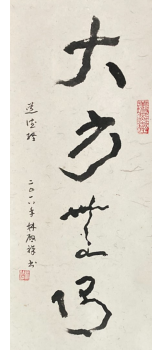 大方無隅
道德經
二〇一八年林
書